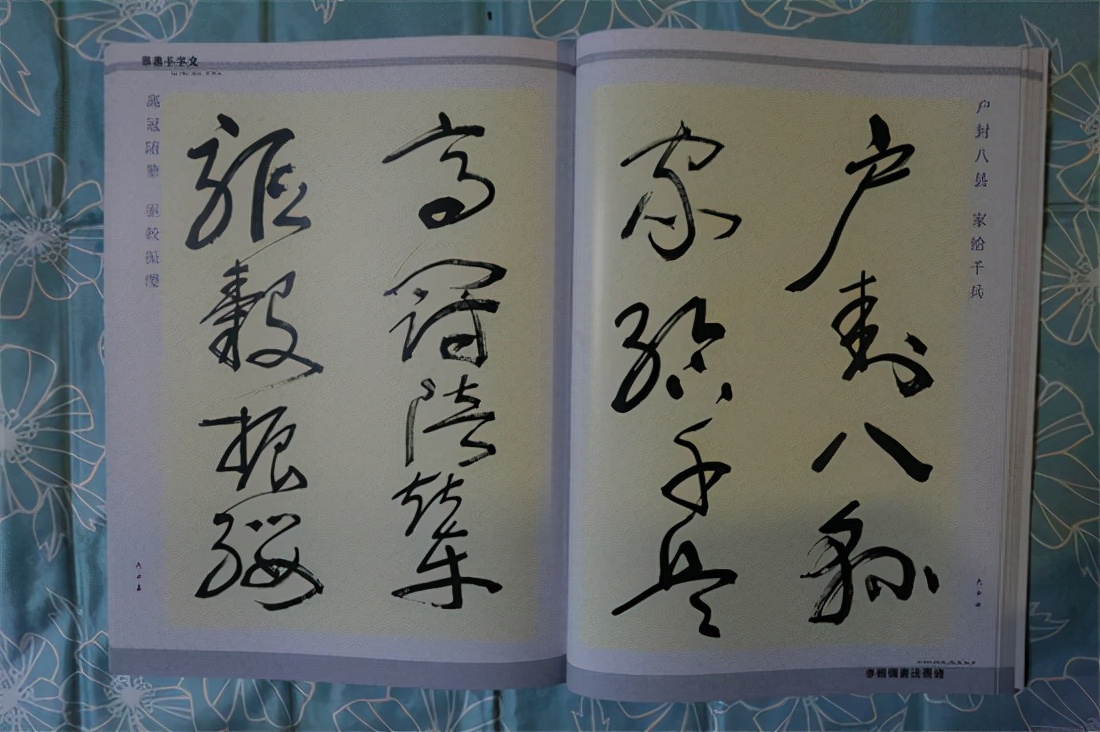 户封八縣
家給千兵
高冠陪輦
驅轂振纓
户封八县 家给千兵
高冠陪輦 驅轂振纓
草書千字文